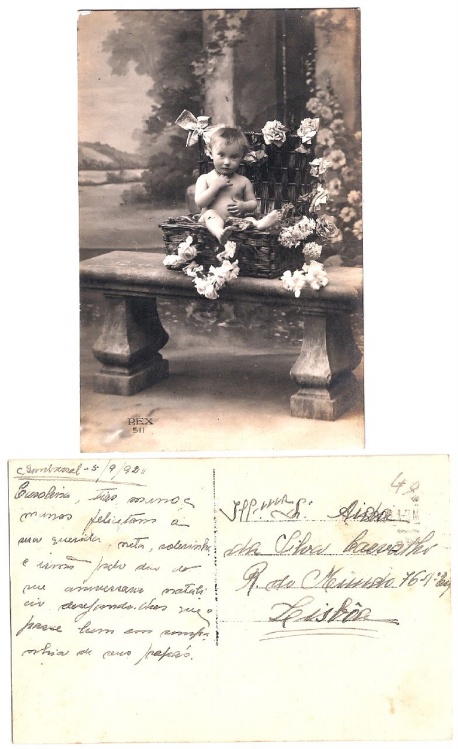 REX
511
Sombracal - 5/9/920
Carolina, tias
felicitam a
sua querida neta, sobrinha
e pelo dia do
seu aniversario natali
cio desejando-lhes que o
passe bem em compa
nhia de seus papás.
Illma. Sra. Aida
da Silva Carvalho
R. do Mundo 76-1º Esq
Lisbôa